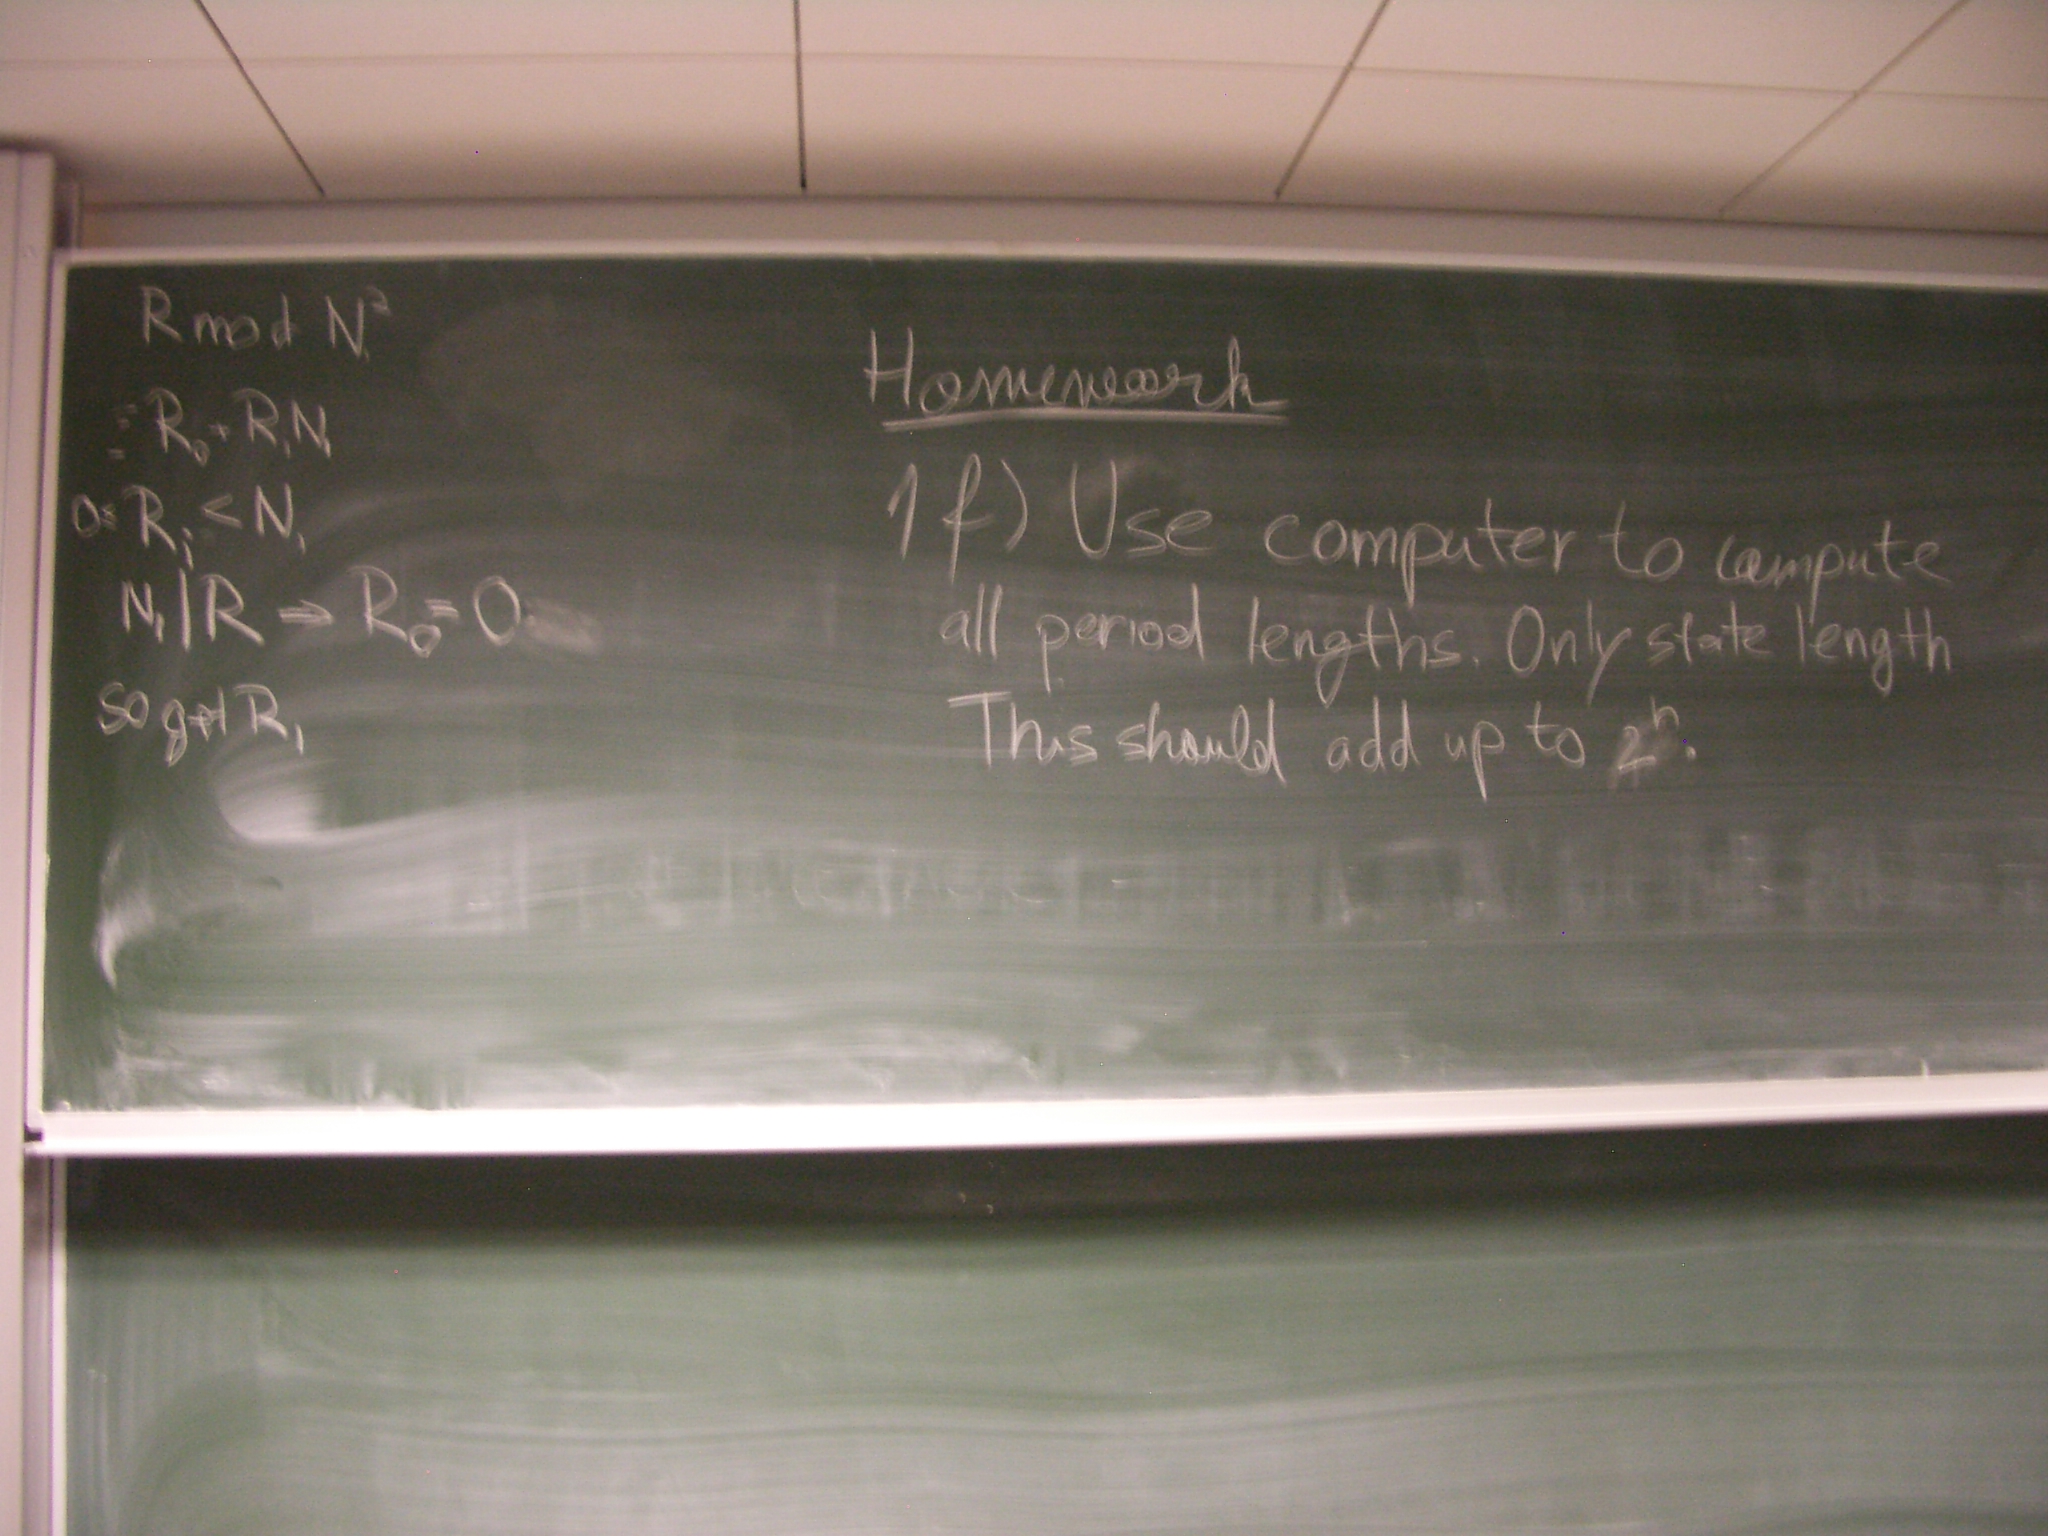 R mod N₁²
= R₀ + R₁N₁
0 ≤ Rᵢ < N₁
N₁ | R ⇒ R₀ = 0
so get R₁
Homework
1 f) Use computer to compute
all period lengths. Only state length
This should add up to 2ⁿ.